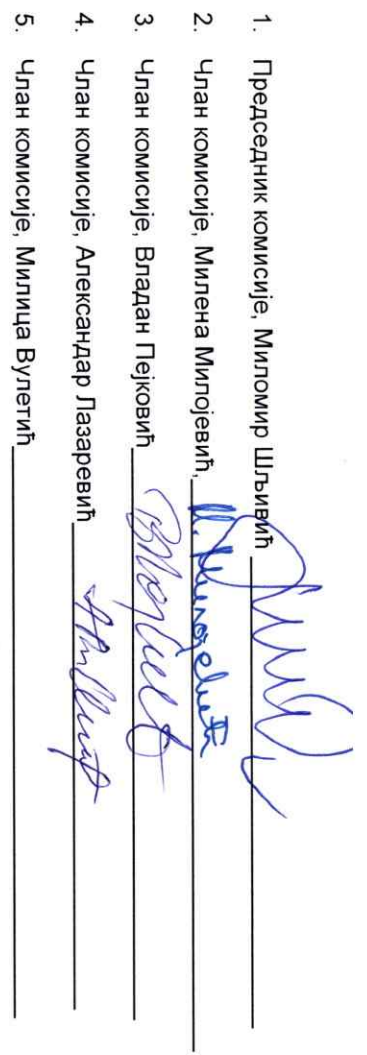 1. Председник комисије, Миломир Шљивић
2. Члан комисије, Милена Милојевић, М. Милојевић
3. Члан комисије, Владан Пејковић
4. Члан комисије, Александар Лазаревић
5. Члан комисије, Милица Вулетић